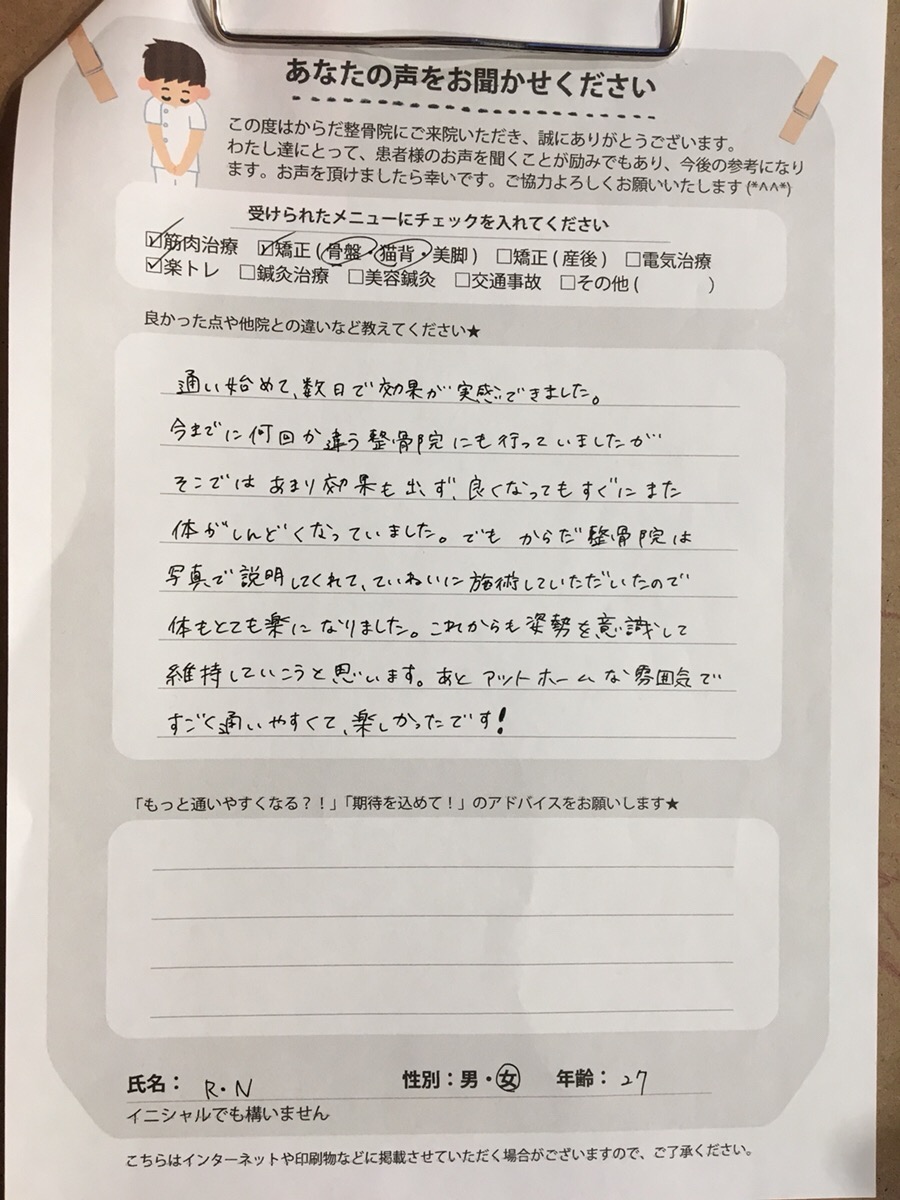 あなたの声をお聞かせください
この度はからだ整骨院にご来院いただき、誠にありがとうございます。
わたし達にとって、患者様のお声を聞くことが励みでもあり、今後の参考になり
ます。お声を頂けましたら幸いです。ご協力よろしくお願いいたします(*^^*)
受けられたメニューにチェックを入れてください
☑筋肉治療 ☑矯正(骨盤・猫背・美脚) □矯正(産後) □電気治療
☑楽トレ □鍼灸治療 □美容鍼灸 □交通事故 □その他( )
良かった点や他院との違いなど教えてください★
通い始めて、数日で効果が実感できました。
今までに何回か違う整骨院にも行っていましたが
そこではあまり効果も出ず、良くなってもすぐにまた
体がしんどくなっていました。でも からだ整骨院は
写真で説明してくれて、ていねいに施術していただいたので
体もとても楽になりました。これからも姿勢を意識して
維持していこうと思います。あと アットホームな雰囲気で
すごく通いやすくて、楽しかったです!
「もっと通いやすくなる?!」「期待を込めて!」のアドバイスをお願いします★
氏名: R・N 性別:男・女 年齢: 27
イニシャルでも構いません
こちらはインターネットや印刷物などに掲載させていただく場合がございますので、ご了承ください。